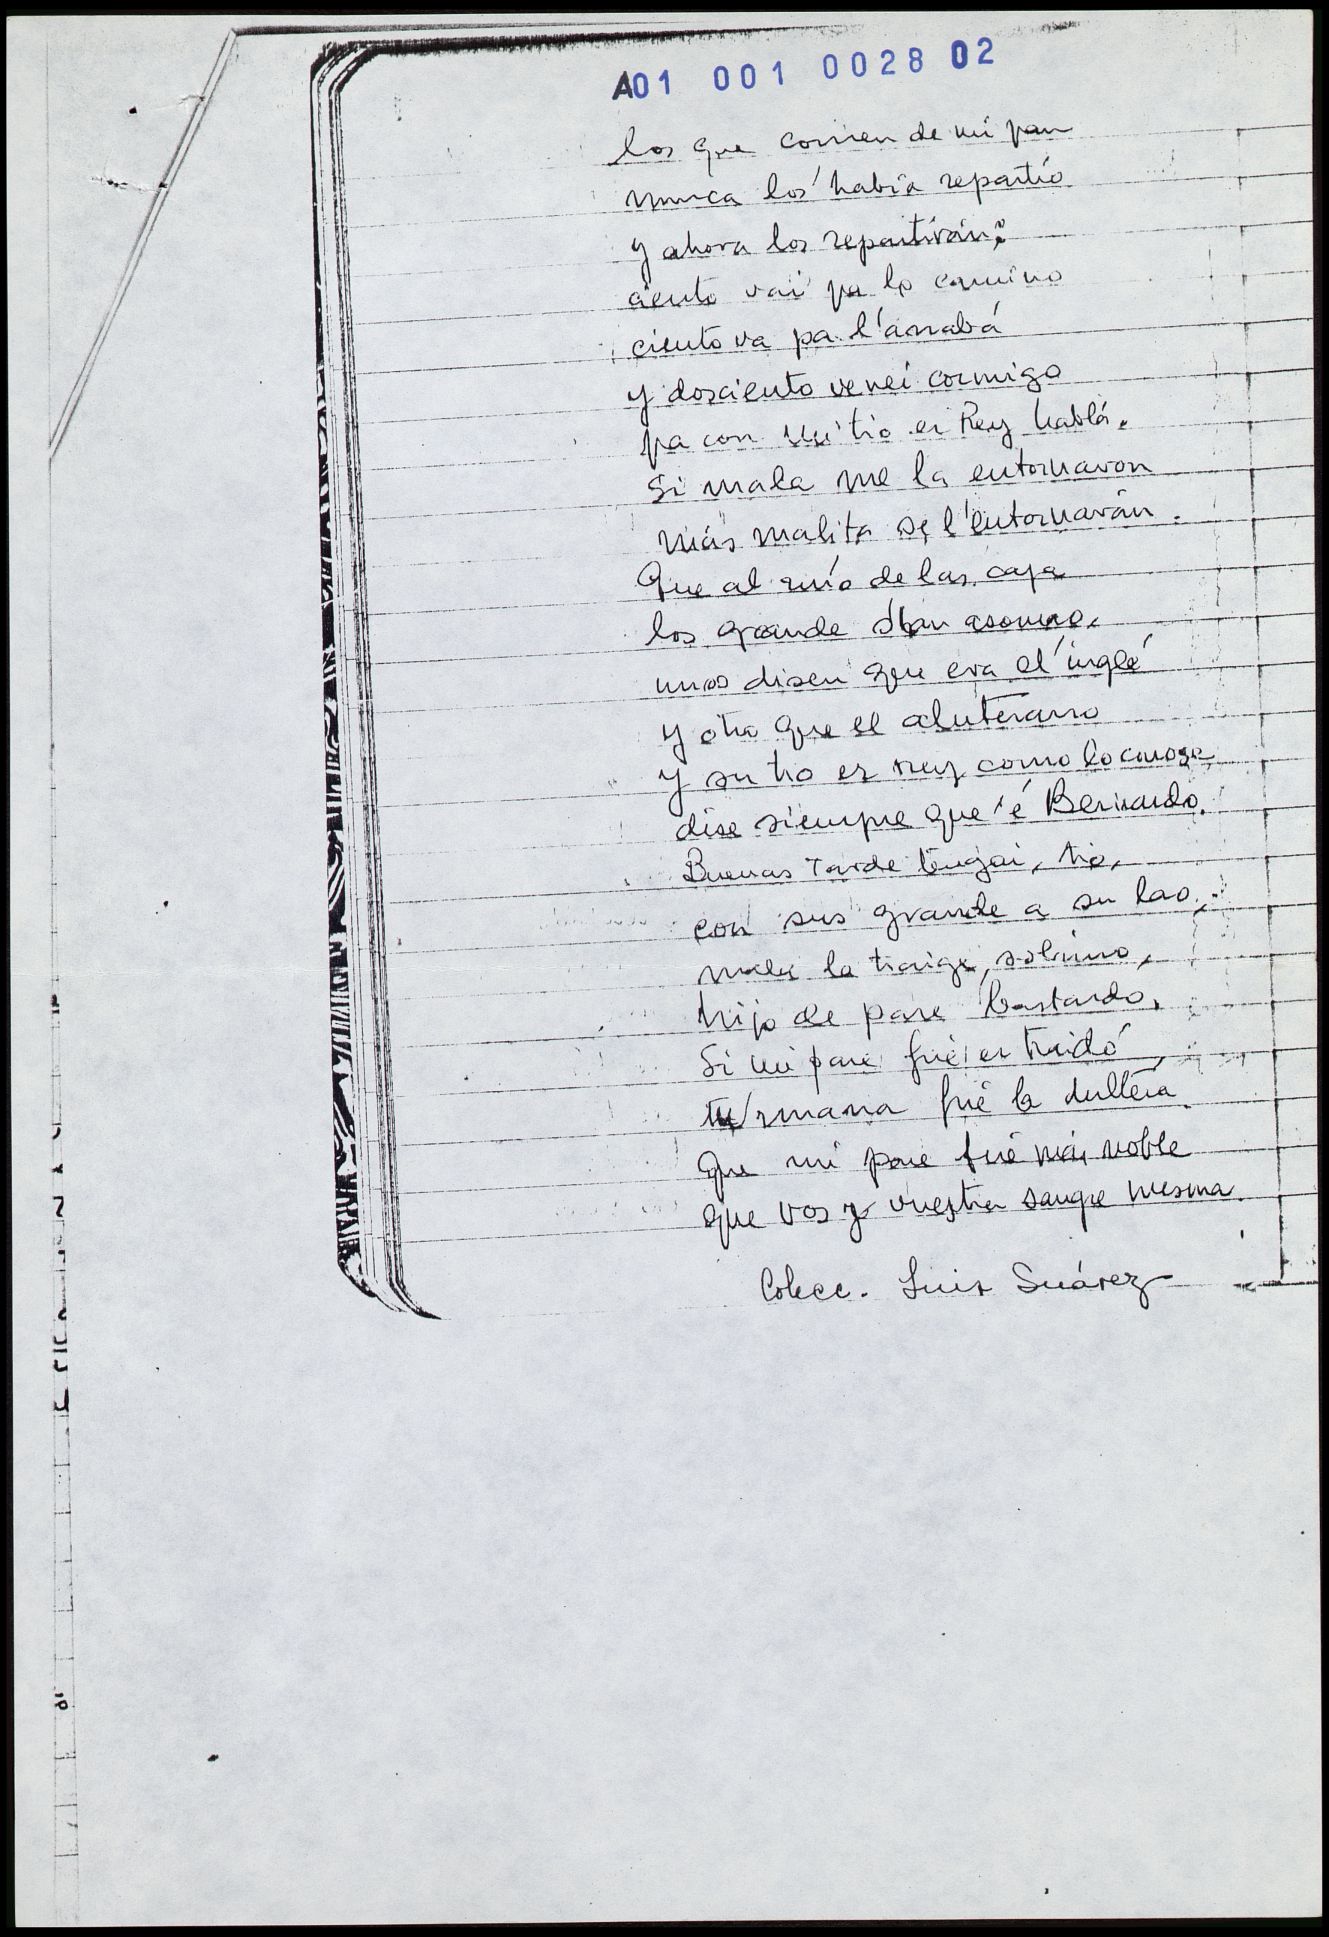 A01 001 0028 02
los que comen de mi pan
nunca los había repartío
y ahora los repartirán:
ciento vai pa lo camino
ciento va pa l'arrabá
y dosciento venei cormigo
pa con mi tío er Rey hablá.
Si mala me la entornaron
más malita se l'entornarán.
Que al ruío de las caja
los grande s'han asomao,
unos disen que era el inglé
y otro que el aluterano
y su tío er rey como lo conose
dise siempre que é Bernardo.
Buenas tarde tengai, tío,
con sus grande a su lao,
mala la traiga, sobrino,
hijo de pare bastardo.
Si mi pare fué er traidó,
tu rmana fué la dultera
que mi pare fué más noble
que vos y vuestra sangre mesma.
Colecc. Luis Suárez